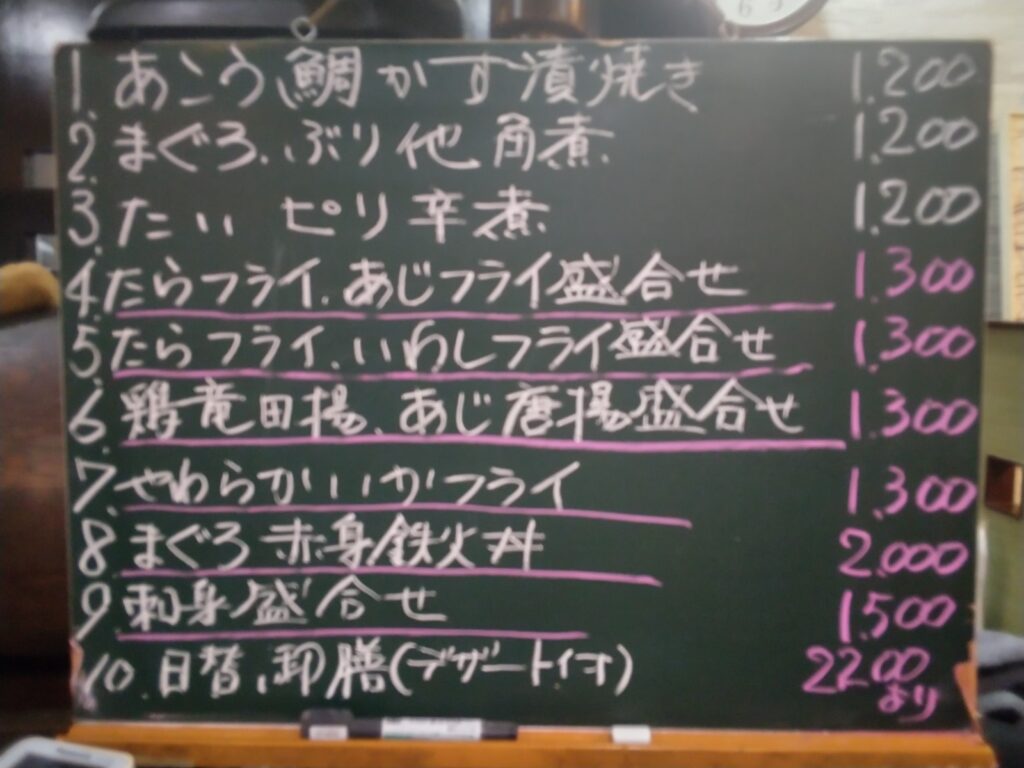 1. あこう鯛かす漬焼き 1.200
2. まぐろ、ぶり他角煮 1.200
3. たい ピリ辛煮 1.200
4. たらフライ、あじフライ盛合せ 1.300
5. たらフライ、いわしフライ盛合せ 1.300
6. 鶏竜田揚、あじ唐揚盛合せ 1.300
7. やわらかいかフライ 1.300
8 まぐろ赤身鉄火丼 2.000
9. 刺身盛合せ 1.500
10. 日替、御膳(デザート付) 2200
より